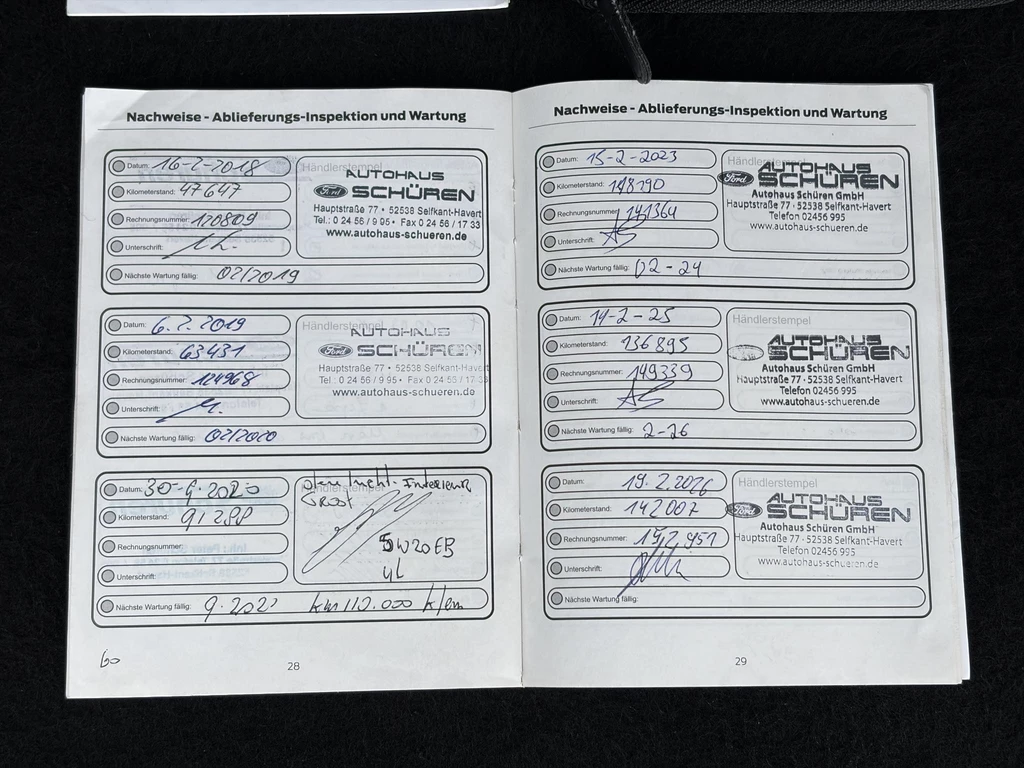 Nachweise - Ablieferungs-Inspektion und Wartung
Datum: 16-2-2018
Kilometerstand: 47647
Rechnungsnummer: 120809
Unterschrift:
Nächste Wartung fällig: 02/2019
Händlerstempel
AUTOHAUS
Ford SCHÜREN
Hauptstraße 77 • 52538 Selfkant-Havert
Tel.: 0 24 56 / 9 95 • Fax 0 24 56 / 17 33
www.autohaus-schueren.de
Datum: 6.2.2019
Kilometerstand: 63431
Rechnungsnummer: 124968
Unterschrift:
Nächste Wartung fällig: 02/2020
Händlerstempel
AUTOHAUS
Ford SCHÜREN
Hauptstraße 77 • 52538 Selfkant-Havert
Tel.: 0 24 56 / 9 95 • Fax 0 24 56 / 17 33
www.autohaus-schueren.de
Datum: 30-9.2020
Kilometerstand: 91288
Rechnungsnummer:
Unterschrift:
Nächste Wartung fällig: 9.202 km 110.000
Händlerstempel
5W20 EB
4L
60
28
Nachweise - Ablieferungs-Inspektion und Wartung
Datum: 15-2-2023
Kilometerstand: 118190
Rechnungsnummer: 141364
Unterschrift: AS
Nächste Wartung fällig: 02-24
Händlerstempel
AUTOHAUS
Ford SCHÜREN
Autohaus Schüren GmbH
Hauptstraße 77 · 52538 Selfkant-Havert
Telefon 02456 995
www.autohaus-schueren.de
Datum: 14-2-25
Kilometerstand: 136895
Rechnungsnummer: 149339
Unterschrift: AS
Nächste Wartung fällig: 2-26
Händlerstempel
AUTOHAUS
SCHÜREN
Autohaus Schüren GmbH
Hauptstraße 77 · 52538 Selfkant-Havert
Telefon 02456 995
www.autohaus-schueren.de
Datum: 19.2.2026
Kilometerstand: 142007
Rechnungsnummer:
Unterschrift:
Nächste Wartung fällig:
Händlerstempel
AUTOHAUS
Ford SCHÜREN
Autohaus Schüren GmbH
Hauptstraße 77 · 52538 Selfkant-Havert
Telefon 02456 995
www.autohaus-schueren.de
29